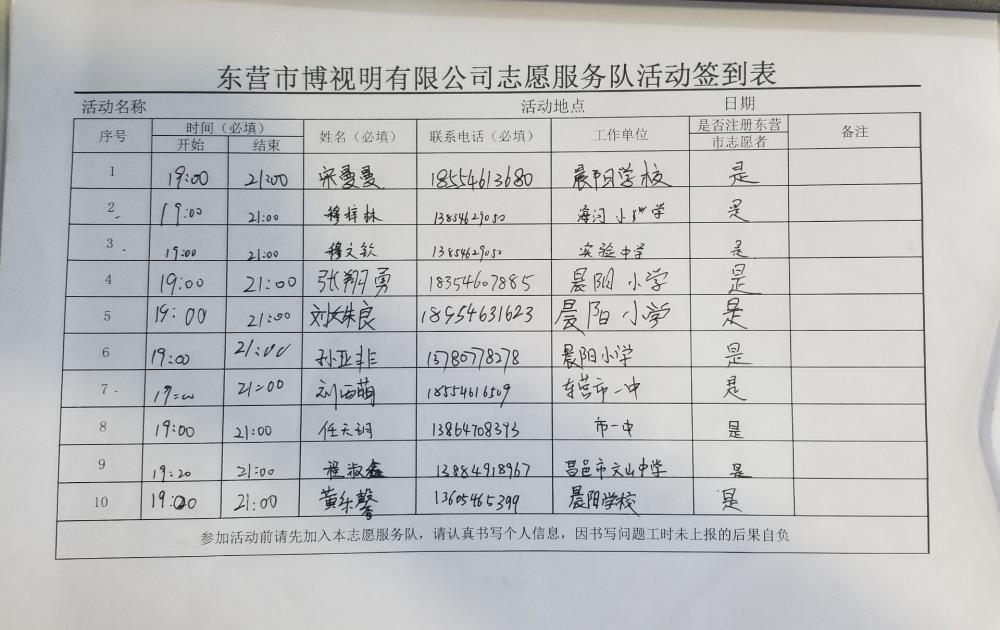 东营市博视明有限公司志愿服务队活动签到表
活动名称 活动地点 日期
序号 时间（必填） 姓名（必填） 联系电话（必填） 工作单位 是否注册东营市志愿者 备注
开始 结束
1 19:00 21:00 宋曼曼 18554613680 晨阳学校 是
2 19:00 21:00 穆梓林 13854629050 海河小学 是
3 19:00 21:00 穆文钦 13854629050 实验中学 是
4 19:00 21:00 张翔勇 18354607885 晨阳小学 是
5 19:00 21:00 刘姝良 18954631623 晨阳小学 是
6 19:00 21:00 孙亚非 13780778278 晨阳小学 是
7 19:00 21:00 刘西萌 18554616509 东营市一中 是
8 19:00 21:00 任天翊 13864708393 市一中 是
9 19:20 21:00 程淑鑫 13884918967 昌邑市文山中学 是
10 19:20 21:00 黄乐馨 13605465399 晨阳学校 是
参加活动前请先加入本志愿服务队，请认真书写个人信息，因书写问题工时未上报的后果自负